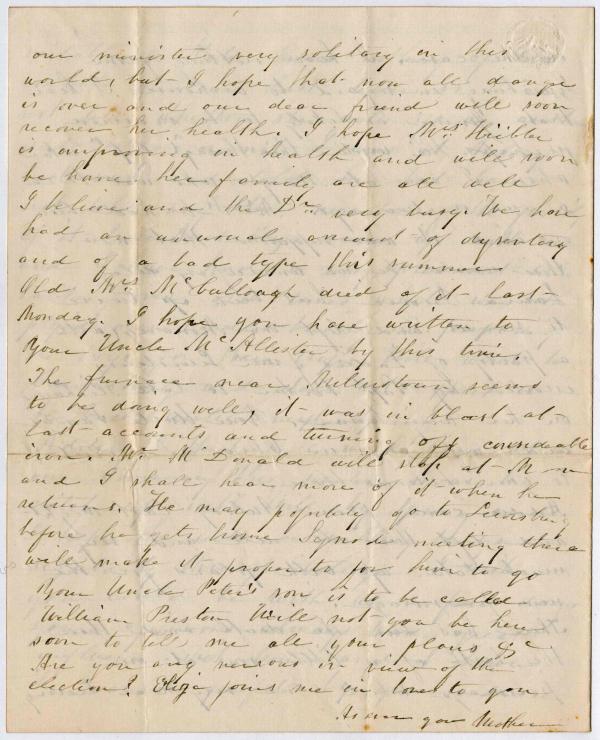 our minister very solitary in this
world, but I hope that now all dange
is over and our dear friend will soon
recover her health. I hope Mrs Hibler
is improving in health and will soon
be home her family are all well
I believe and the Dr very busy. We have
had an unusual amount of dysentery
and of a bad type this summer
Old Mrs McCullough died of it last
Monday. I hope you have written to
Your Uncle McAllester by this time.
The furnace near Millerstown seems
to be doing well, it was in blast at
last accounts and turning off considerable
iron. Mr McDonald will stop at M
and I shall hear more of it when he
returns. He may possibly go to Lewisburg
before he gets home Synod meeting there
will make it proper to for him to go
Your Uncle Peter's son is to be called
William Preston Will not you be here
soon to tell me all your plans &c
Are you any nervous in view of the
election? Eliza joins me in love to you
As ever your Mother